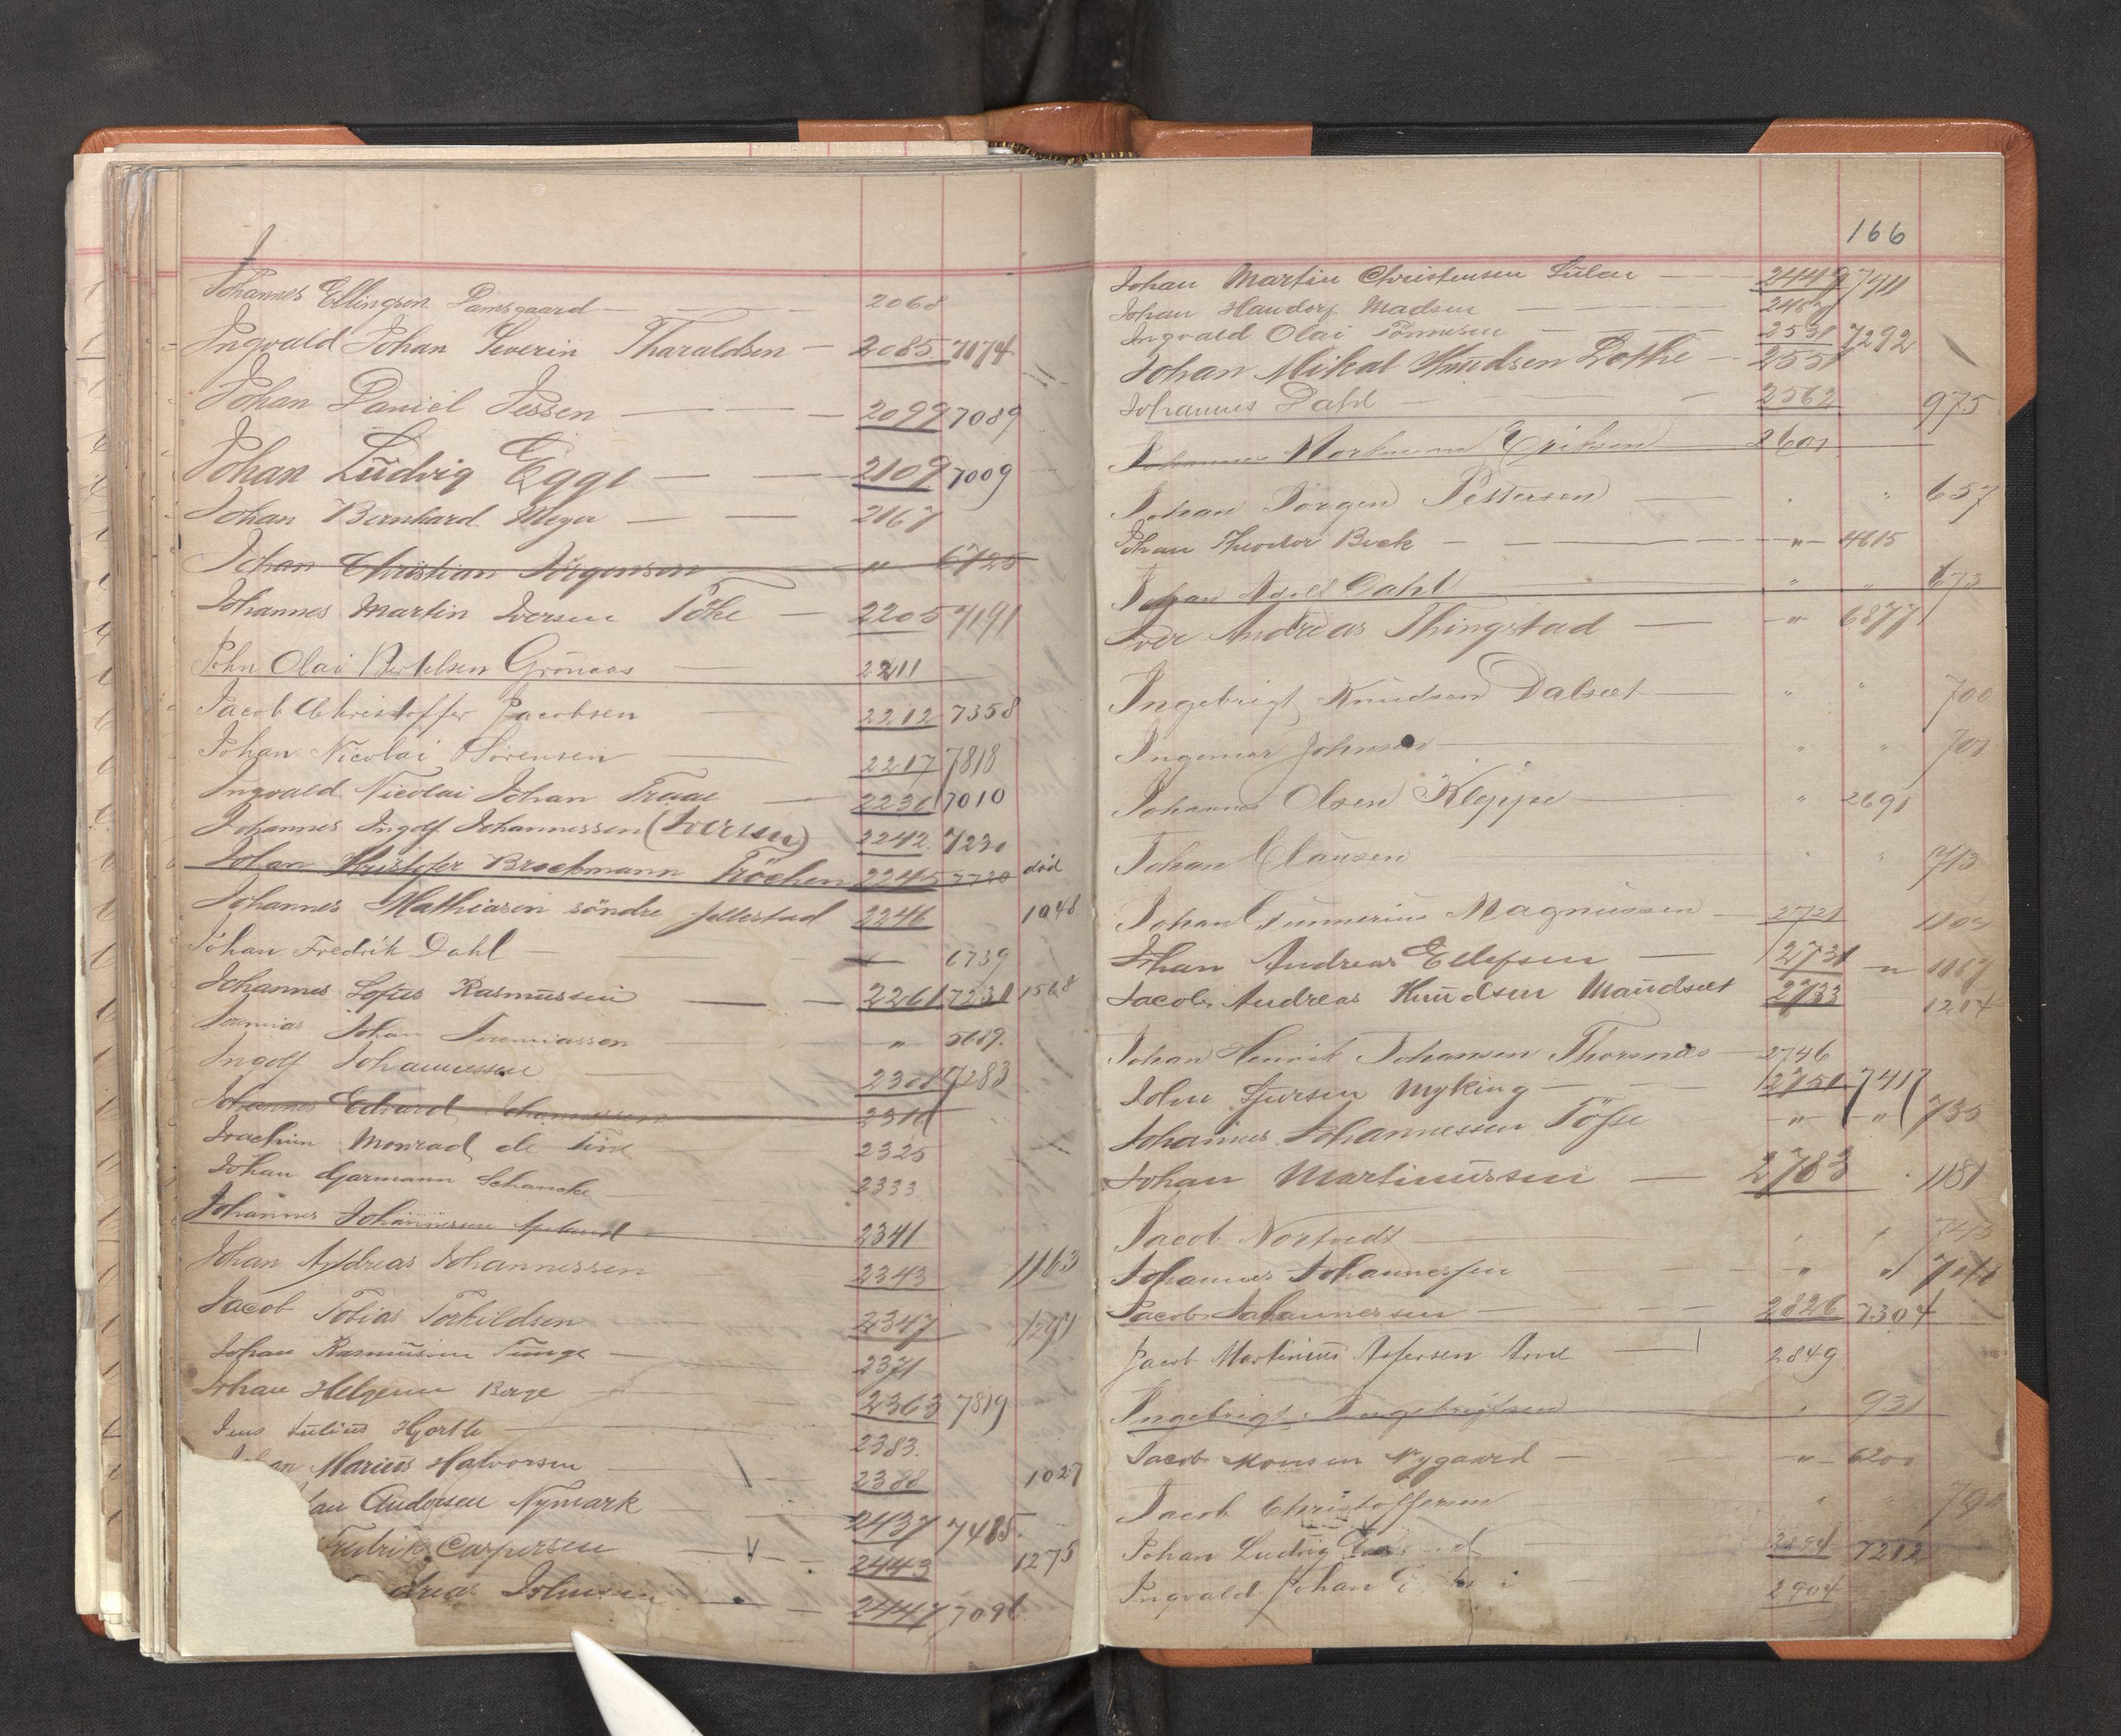 J
Johannes Ellingsen Damsgaard — 2068
Ingvald Johan Severin Tharaldsen — 2085 7174
Johan Daniel Jessen — 2099 7089
Johan Ludvig Egge — 2109 7009
Johan Bernhard Meyer — 2167
Johan Christian Jörgensen " 6725
Johannes Martin Iversen Töke — 2205 7191
John Olai Bertelsen Grönaas — 2211
Jacob Christoffer Jacobsen 2212 7358
Johan Nicolai Sörensen 2217 7818
Ingvald Nicolai Johan Traae — 2230 7010
Johannes Ingolf Johannessen (Iversen) 2242 7230
Johan Kristofer Brockmann 2245 7720 död
Johannes Mathiasen söndre Jellestad 2246 1048
Johan Fredrik Dahl — 6739
Johannes Sofus Rasmussen — 2261 7231 1568
Jeremias Johan Jeremiassen " 5689.
Ingolf Johannessen 2308 7283
Johannes Edvard Johannessen 2316
Joachim Monrad de Fine 2325
Johan Garmann Schancke 2333
Johannes Johannessen 2341
Johan Andreas Johannessen 2343 1163
Jacob Tobias Torkildsen 2347 1291
Johan Rasmussen Tunge — 2371
Johan Helgesen Berge 2363 7819
Jens Julius Hjorth 2383.
Marius Halvorsen — 2388 1027
Andersen Nymark 2437 7485
Fredrik Caspersen 2443 1275
Johnsen 2447 7096
166
Johan Martin Christensen — 2449 7711
Johan Madsen
Ingvald Olai Tönnesen — 2531 7292
Johan Mikal Knudsen Lothe — 2551
Johannes Dahl — 2562 975
Johannes Eriksen 2601
Johan Jörgen Pettersen — " 657
Johan Theodor Beck — " 4615
Johan Dahl " " 673
Iver Andreas Thingstad — " 6877
Ingebrigt Knudsen Dalsæt — " " 700
Ingemar Johnsen — " " 701
Johannes Olsen Kleppe " 2691
Johan Clausen " " 713
Johan Gunnerius Magnussen — 2721
Johan Andreas Ellefsen — 2731 " 1167
Jacob Andreas Knudsen Maudsæt 2733 1204
Johan Henrik Johansen Thorsnes — 2746
John Sjursen Myking — 2751 7417
Johannes Johannessen Tösse " " 735
Johan Martinussen — 2783 1181
Jacob Nortvedt " " 743
Johannes Johannessen " "
Jacob Johannessen — 2826 7304
Jacob Martinius Aspersen Arne — 2849
Ingebrigt Ingebrigtsen 931
Jacob Monsen Nygaard — " 6200
Jacob Christoffersen
Johan Ludvig 2894 7212
Ingvald Johan 2904